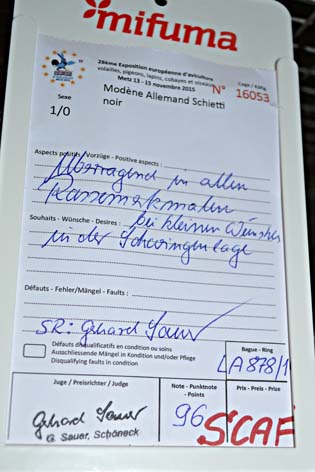 mifuma
28ème Exposition européenne d'aviculture
volailles, pigeons, lapins, cobayes et oiseaux
Metz 13 - 15 novembre 2015
Cage / Käfig
Modène Allemand Schietti
N° 16053
noir
Sexe
1/0
Aspects positifs - Vorzüge - Positive aspects :
Überragend in allen
Rassemerkmalen
Souhaits - Wünsche - Desires : bei kleinen Wünschen
in der Schwingenlage
Défauts - Fehler/Mängel - Faults :
SR: Gehard Sauer
Défauts disqualificatifs en condition ou soins
Ausschliessende Mängel in Kondition und/oder Pflege
Disqualifying faults in condition
Bague - Ring
LA 878/1
Juge / Preisrichter / Judge
Note - Punktnote - Points
Prix - Preis - Prize
Gehard Sauer
G. Sauer, Schöneck
96
SCAF